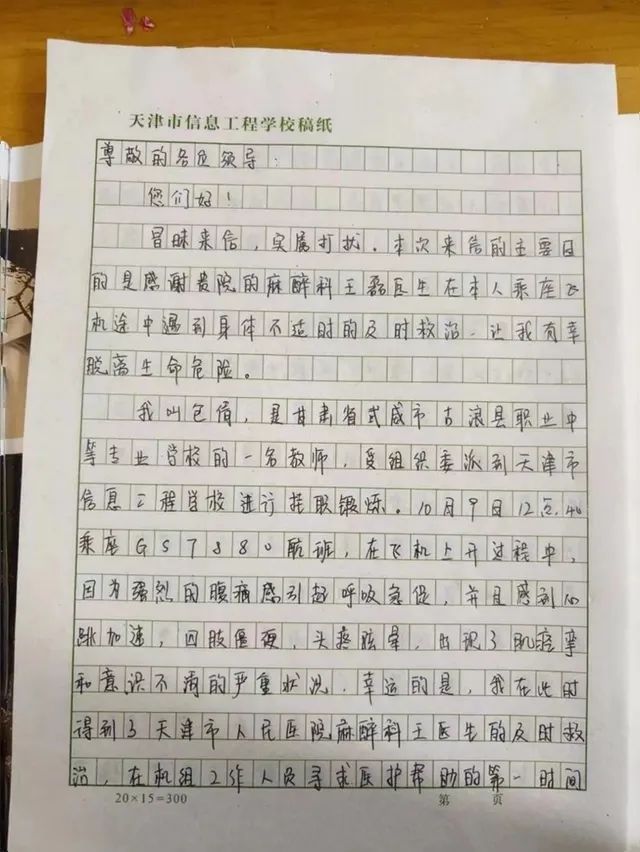 天津市信息工程学校稿纸
尊敬的各位领导：
您们好！
冒昧来信，实属打扰。本次来信的主要目
的是感谢贵院的麻醉科王磊医生在本人乘座飞
机途中遇到身体不适时的及时救治，让我有幸
脱离生命危险。
我叫包倩，是甘肃省武威市古浪县职业中
等专业学校的一名教师，受组织委派到天津市
信息工程学校进行挂职锻炼。10月9日12点40
乘座GS7880航班，在飞机上升过程中，
因为强烈的腹痛感引起呼吸急促，并且感到心
跳加速，四肢僵硬，头疼眩晕，出现了肌痉挛
和意识不清的严重状况，幸运的是，我在此时
得到了天津市人民医院麻醉科王医生的及时救
治，在机组工作人员寻求医护帮助的第一时间
20×15=300 第 页